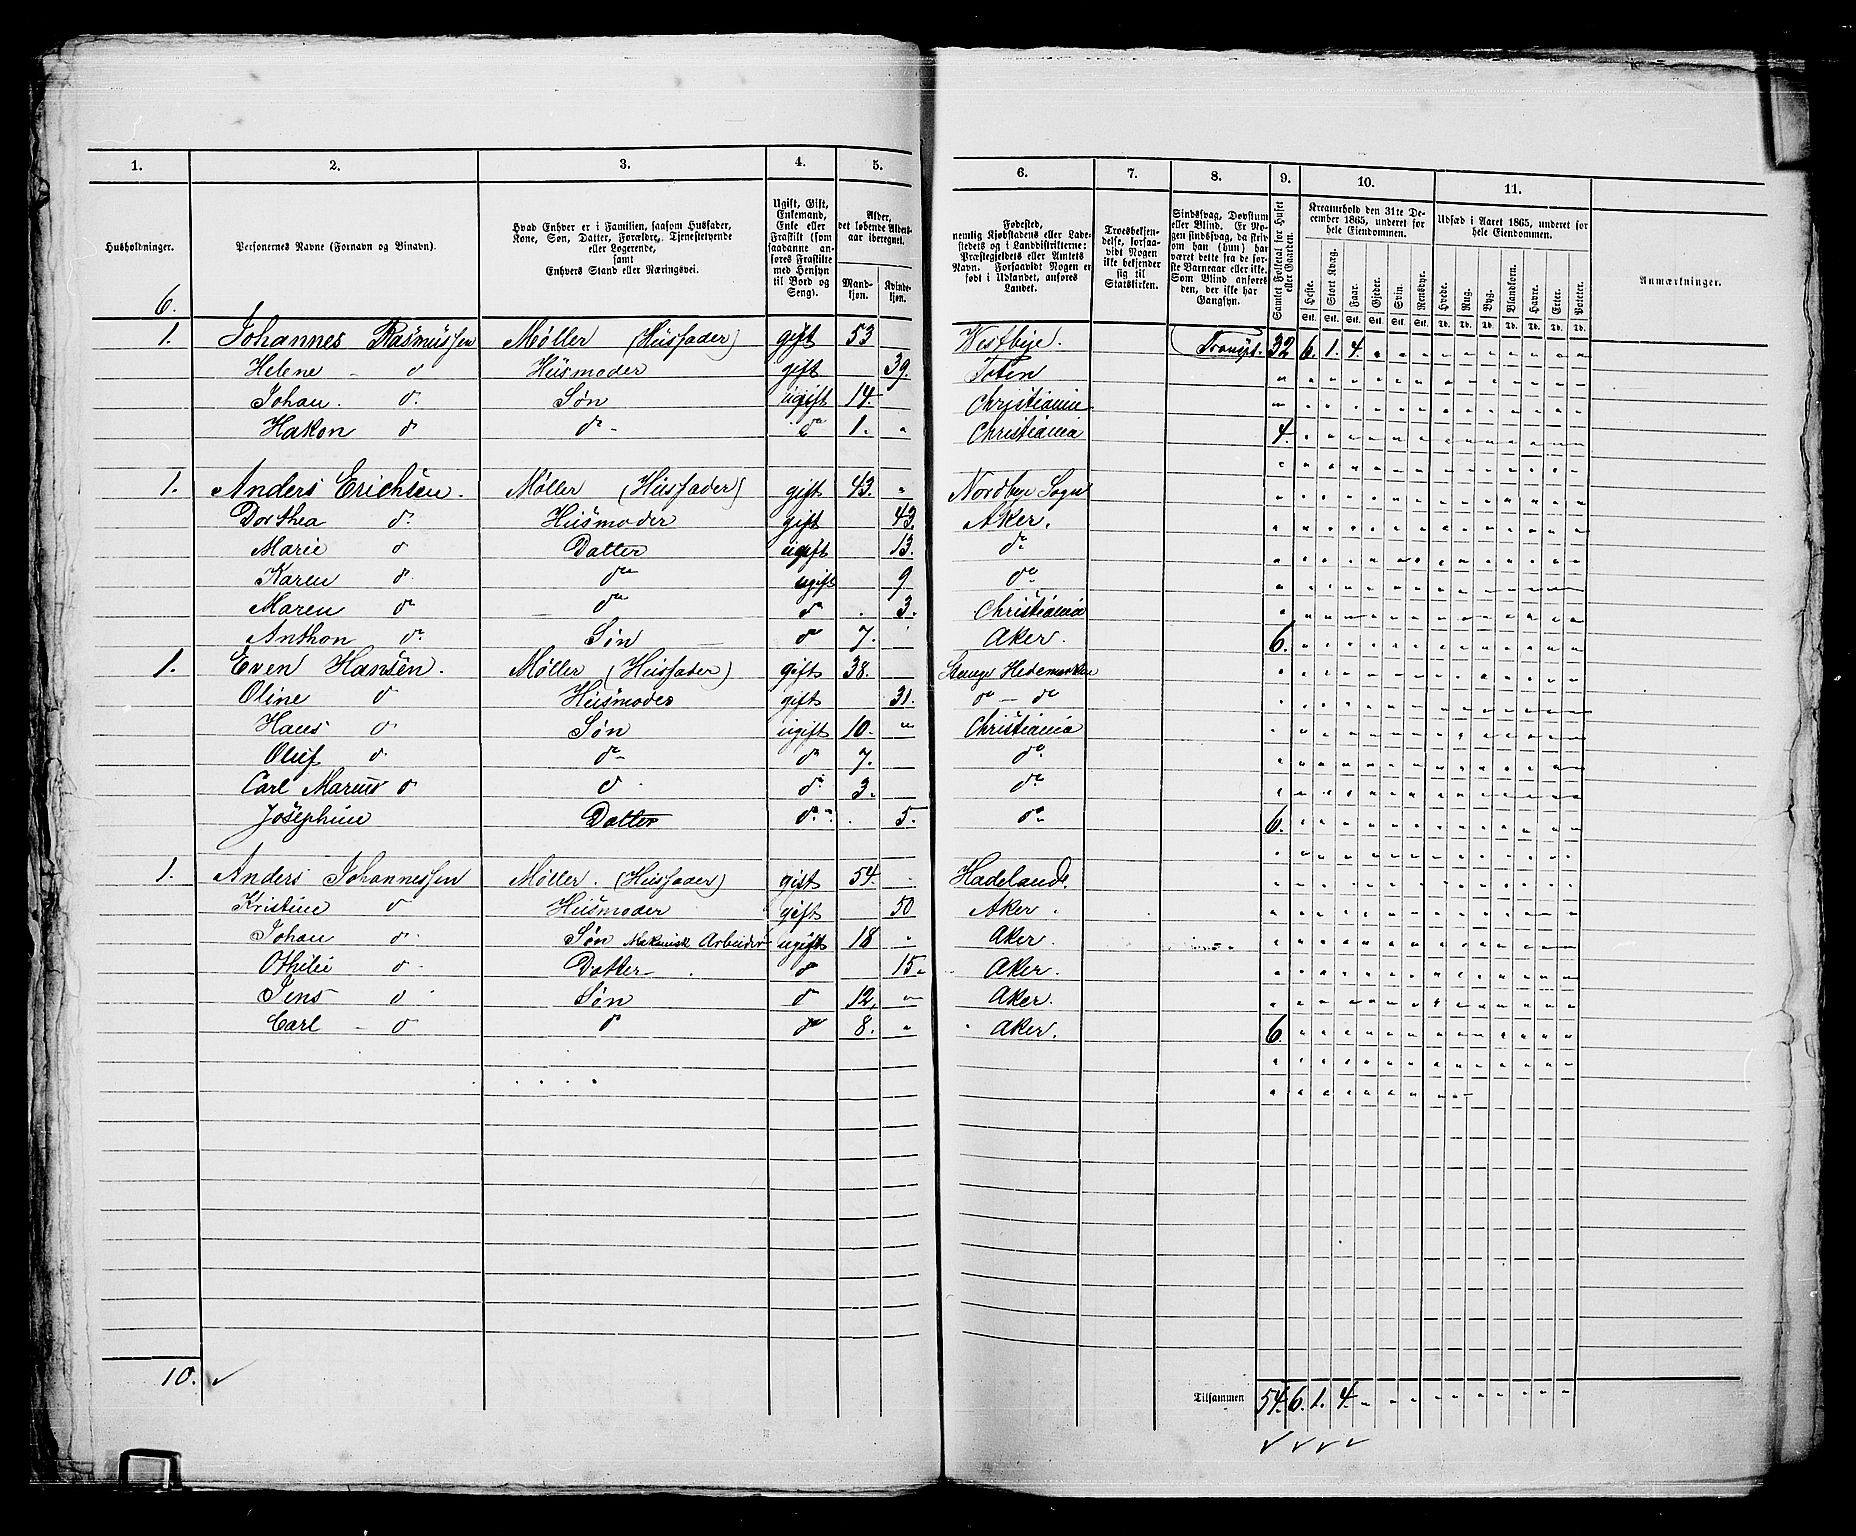 1. 2. 3. 4. 5. 6. 7. 8. 9. 10. 11.
Husholdninger.
Personernes Navne (Fornavn og Binavn).
Hvad Enhver er i Familien, saasom Husfader,
Kone, Søn, Datter, Forældre, Tjenestetyende
eller Logerende,
samt
Enhvers Stand eller Næringsvei.
Ugift, Gift,
Enkemand,
Enke eller
Fraskilt (som
saadanne an-
føres Fraskilte
med Hensyn
til Bord og
Seng).
Alder,
det løbende Alders-
aar iberegnet.
Mand-
kjøn.
Kvinde-
kjøn.
Fødested,
nemlig Kjøbstadens eller Lade-
stedets og i Landdistrikterne:
Præstegjeldets eller Amtets
Navn. Forsaavidt Nogen er
født i Udlandet, anføres
Landet.
Troesbekjen-
delse, forsaa-
vidt Nogen
ikke bekjender
sig til
Statskirken.
Sindssvag, Døvstum
eller Blind. Er No-
gen sindssvag, da skriv
om han (hun) har
været dette fra de før-
ste Barneaar eller ikke.
Som Blind ansøres
den, der ikke har
Gangsyn.
Samlet Folketal for Huset
eller Gaarden.
Kreaturhold den 31te De-
cember 1865, underet for
hele Eiendommen.
Heste. Stort Kvæg. Faar. Gjeder. Svin. Rensdyr.
Stk. Stk. Stk. Stk. Stk. Stk.
Udsæd i Aaret 1865, underet for
hele Eiendommen.
Hvede. Rug. Byg. Blandkorn. Havre. Erter. Poteter.
Td. Td. Td. Td. Td. Td. Td.
Anmærkninger.
6.
1. Johannes Rasmussen Møller (Husfader) gift 53 Westbye. Transpt. 32 6. 1. 4.
Helene do Husmoder gift 39. Toten
Johan. do. Søn ugift 14. Christiania
Hakon do do do 1. Christiania 4.
1. Anders Erichsen. Møller (Husfader) gift 43. Nordbye Sogn
Dorthea do. Husmoder gift 43. Aker.
Marie do Datter ugift 13. do
Karen do. do ugift 9 do
Maren do do do 3. Christiania
Anthon do. Søn do 7. Aker. 6.
1. Even Hansen. Møller (Husfader) gift 38. Stange Hedemarken
Oline do Husmoder gift 31. do - do
Hans do Søn ugift 10. Christiania
Oluf do. do do 7. do.
Carl Marius do do do 3. do
Josephine Datter do. 5. do 6.
1. Anders Johannessen Møller. (Husfader) gift 54. Hadeland.
Kristine do Husmoder gift 50 Aker.
Johan do. Søn Mekanisk Arbeider ugift 18 Aker.
Othilie do Datter do 15. Aker.
Jens do Søn do 12. Aker.
Carl do do do 8. Aker. 6.
10.
Tilsammen 54. 6. 1. 4.